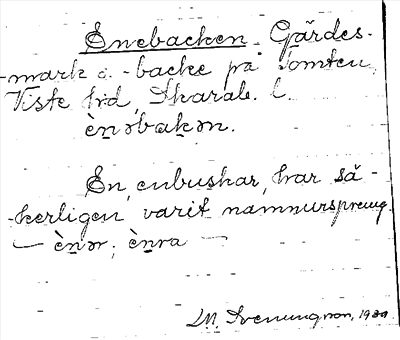 Enebacken Gärdes-
mark o. -backe på Tomten,
Viste hrd, Skarab. l.
èn̲əbak̲ən.
En, enbuskar, har sä-
kerligen varit namnursprung.
— èn̲ər, èn̲ra —
M. Svenungson, 19